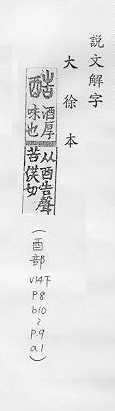 說文解字
大徐本
酷
酒厚
味也
从酉告聲
苦切
(酉部
V14下
P8
b10
~
P9
a1)